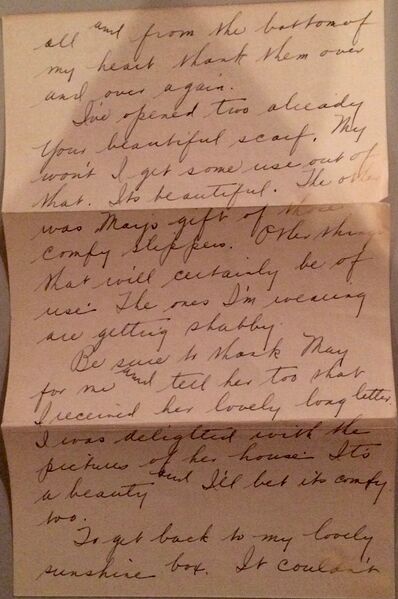 all and from the bottom of
my heart thank them over
and over again.
I've opened two already
Your beautiful scarf. My
won't I get some use out of
that. Its beautiful. The other
was Mays gift of those
comfy slippers. Other things
that will certainly be of
use. The ones I'm wearing
are getting shabby.
Be sure to thank May
for me and tell her too that
I received her lovely long letter.
I was delighted with the
pictures of her house. Its
a beauty and I'll bet its comfy
too.
To get back to my lovely
sunshine box. It couldn't